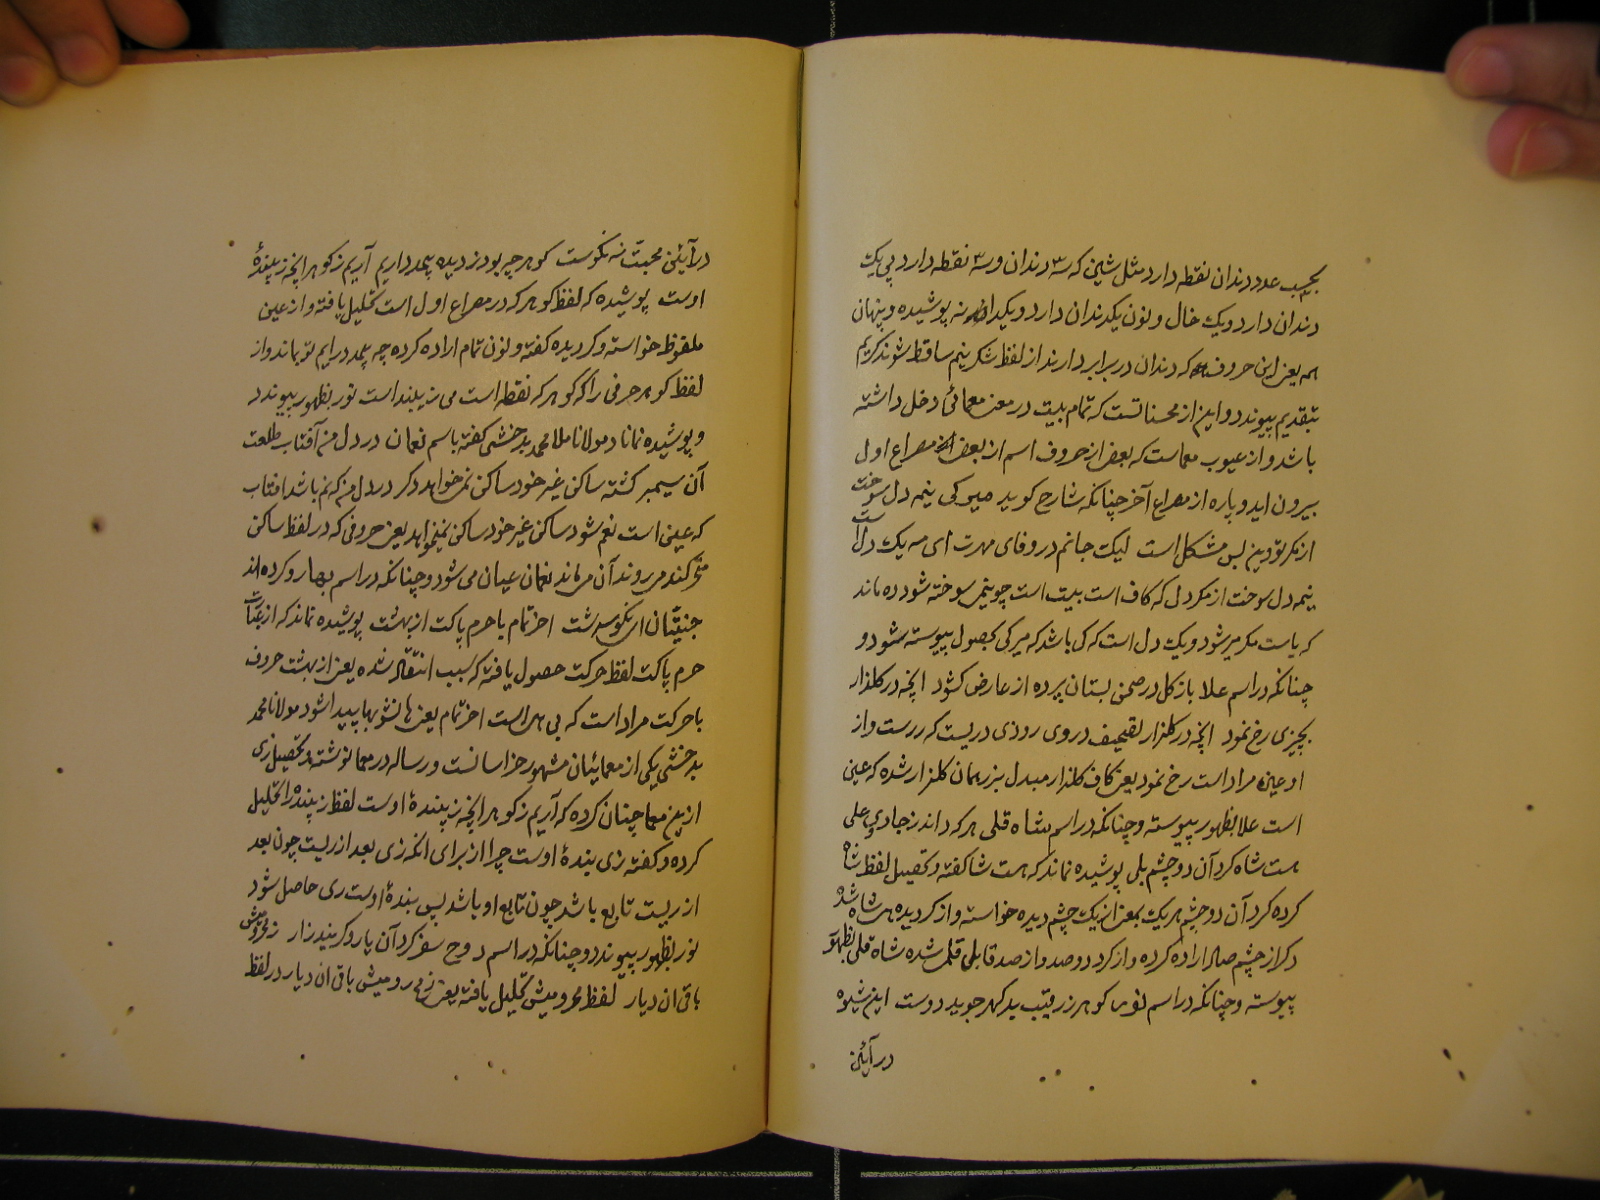 بحسب عدد دندان نقطه دارد مثل شین که سه دندان و سه نقطه دارد بی یک
دندان دارد و یک خال و نون یکدندان دارد و یکدانه نه پوشیده و پنهان
یعنی این حروف که دندان در برابر دارند از لفظ شکرینم ساقط شوند کریم
بتقدیم پیوندد و این از محسناتست که تمام بیت در معنی معمائی دخل داشته
باشد و از عیوب معماست که بعض از حروف اسم از بعض مصراع اول
بیرون اید و پاره از مصراع آخر چنانکه شارح کوید میرکی نیمه دل سوخت
از مکر تو وین بس مشکل است لیک جانم در وفای مهرت ای مه یک دل است
نیمه دل سوخت از مکر دل که کاف است بیت است چو نیم سوخته شود ده ماند
که یاست مکر میر شود و یک دل است که کی باشد که میرکی بحصول پیوسته شود و
چنانکه در اسم علا باز کل در صحن بستان پرده از عارض کشود انچه در کلزار
بچیزی رخ نمود انچه در کلزار تصحیف در وی روزی دریست که زرست و از
او عین مراد است رخ نمود یعنی کاف کلزار مبدل بزر همان کلزار شده که عین
است علا بظهور پیوسته و چنانکه در اسم شاه قلی هر که داند ز جادوی علی
هست شاه کرد آن دو چشم بلی پوشیده نماند که هست شا کفته و تحصیل لفظ شاه
کرده کرد آن دو چشم هر یک بمعنی از یک چشم دیده خواسته و از کردیده هست شاه شده
دکر از چشم صاد اراده کرده و از کرد دو صد و از صد قاف قلی شده شاه قلی بظهور
پیوسته و چنانکه در اسم نور کوهر ز رقیب بد کهر جوید دوست این شیوه
در آیئن
در آیئن محبت نه نکوست کوهر چو بود ز دیده بیمد داریم آریم ز کوهر انچه زیبندهٔ
اوست پوشیده که لفظ کوهر که در مصراع اول است تحلیل یافته و از عین
ملفوظ خواسته و کر دیده کفته و نون تمام اراده کرده چه بیمد دارایم نو بماند و از
لفظ کوهر حرفی را که کوهر که نقطه است می زیبند است نور بظهور پیوندد
و پوشیده نماناد مولانا ملا محمد بدخشی کفته باسم نعمان در دل من آفتاب طلعت
آن سیمبر کشته ساکن غیر خود ساکن نمیخواهد دکر در دل من که نم باشد افتاب
که عین است نعم شود ساکن غیر خود ساکن نمیخواهد یعنی حروفی که در لفظ ساکن
متحرکند میروند آن میماند نعمان عیان می شود و چنانکه در اسم بهار و کرده اند
جنتیان نکو سرشت احترام با حرم پاکت از بهشت پوشیده نماند که از
حرم پاکت لفظ حرکت حصول یافته که سبب انتقاله شده یعنی از بهشت حروف
با حرکت مراد است که بی هراست احترام یعنی ها نشو بها پیدا شود مولانا محمد
بدخشی یکی از معمائیان مشهور خراسانست و رساله در معما نوشته و تحصیل زی
ازین معما چنان کرده که آریم ز کوهر انچه زیبندهٔ اوست لفظ زیبنده را تحلیل
کرده و کفته زی بندهٔ اوست چرا از برای انکه زی بعد از ریست چون بعد
از ریست تابع باشد چون تابع او باشد پس بندهٔ اوست ری حاصل شود
نور بظهور پیوندد و چنانکه در اسم روح سفر کرد آن یار و کریند زار ز محرومیش
باقی ان دیار لفظ محرومیش تحلیل یافته یعنی ز می رو میش باقی ان دیار در لفظ